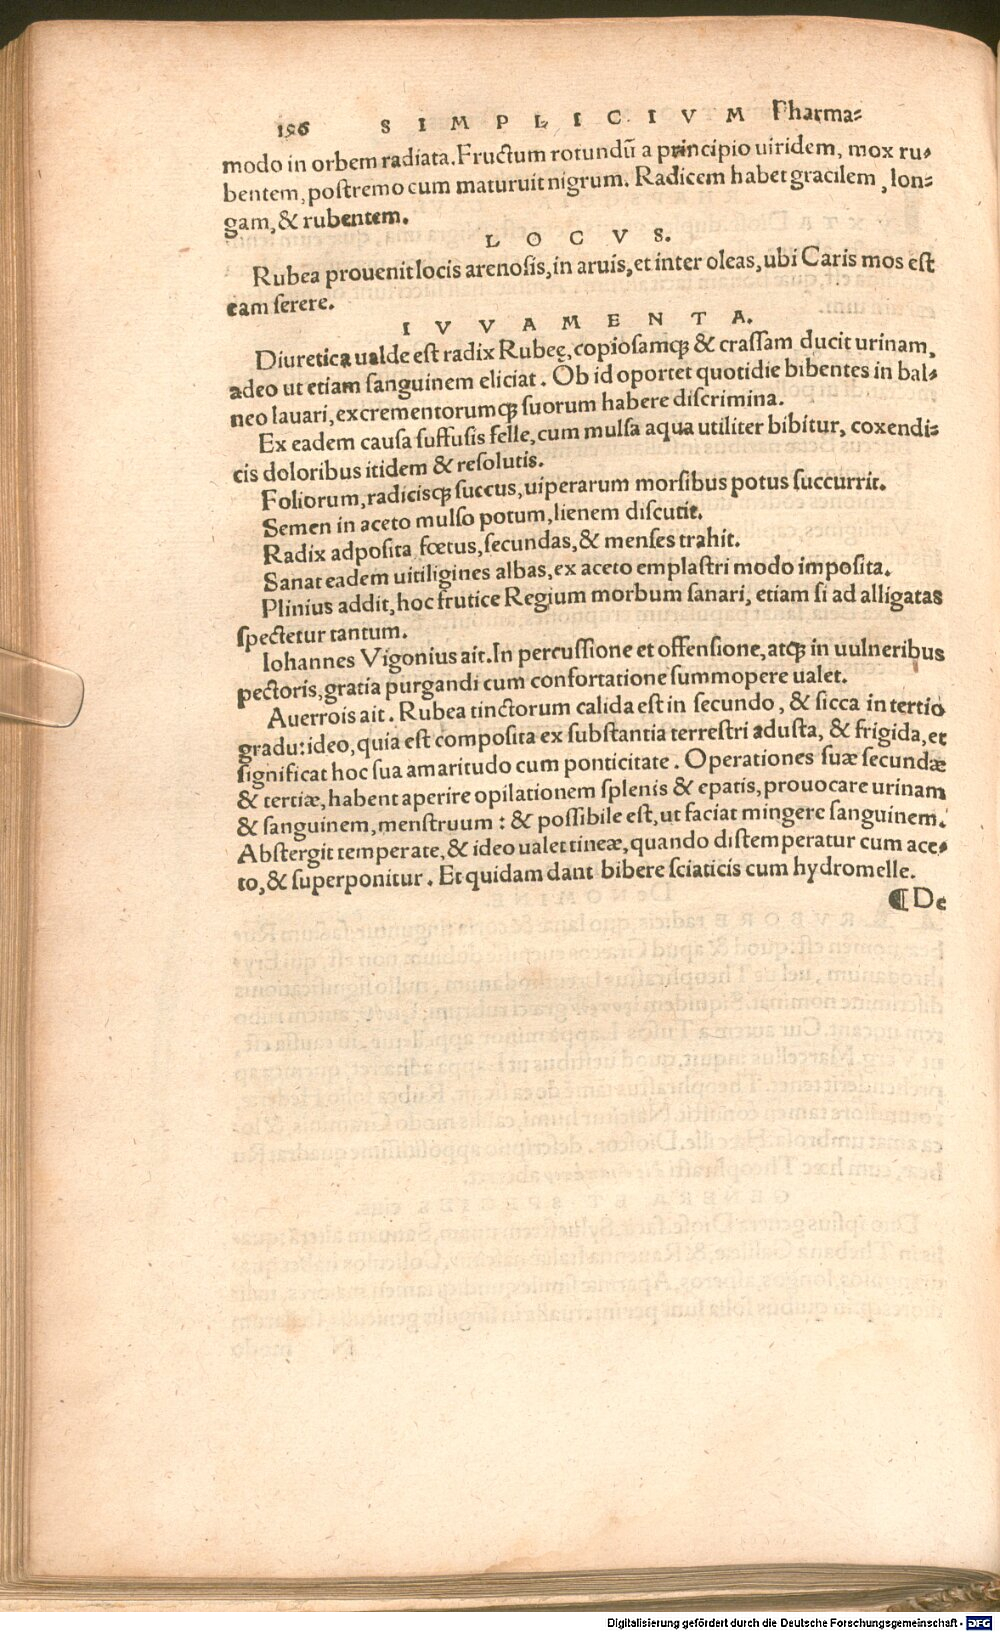 196 SIMPLICIVM Pharma-
modo in orbem radiata. Fructum rotundū a principio uiridem, mox ru-
bentem, postremo cum maturuit nigrum. Radicem habet gracilem, lon-
gam, & rubentem.
LOCVS.
Rubea prouenit locis arenosis, in aruis, et inter oleas, ubi Caris mos est
eam serere.
IVVAMENTA.
Diuretica ualde est radix Rubeę, copiosamq; & crassam ducit urinam,
adeo ut etiam sanguinem eliciat. Ob id oportet quotidie bibentes in bal-
neo lauari, excrementorumq; suorum habere discrimina.
Ex eadem causa suffusis felle, cum mulsa aqua utiliter bibitur, coxendi-
cis doloribus itidem & resolutis.
Foliorum, radicisq; succus, uiperarum morsibus potus succurrit.
Semen in aceto mulso potum, lienem discutit.
Radix adposita fœtus, secundas, & menses trahit.
Sanat eadem uitiligines albas, ex aceto emplastri modo imposita.
Plinius addit, hoc frutice Regium morbum sanari, etiam si ad alligatas
spectetur tantum.
Iohannes Vigonius ait. In percussione et offensione, atq; in uulneribus
pectoris, gratia purgandi cum confortatione summopere ualet.
Auerrois ait. Rubea tinctorum calida est in secundo, & sicca in tertio
gradu: ideo, quia est composita ex substantia terrestri adusta, & frigida, et
significat hoc sua amaritudo cum ponticitate. Operationes suæ secundæ
& tertiæ, habent aperire opilationem splenis & epatis, prouocare urinam
& sanguinem, menstruum: & possibile est, ut faciat mingere sanguinem.
Abstergit temperate, & ideo ualet tineæ, quando distemperatur cum ace-
to, & superponitur. Et quidam dant bibere sciaticis cum hydromelle.
¶De
Digitalisierung gefördert durch die Deutsche Forschungsgemeinschaft - DFG